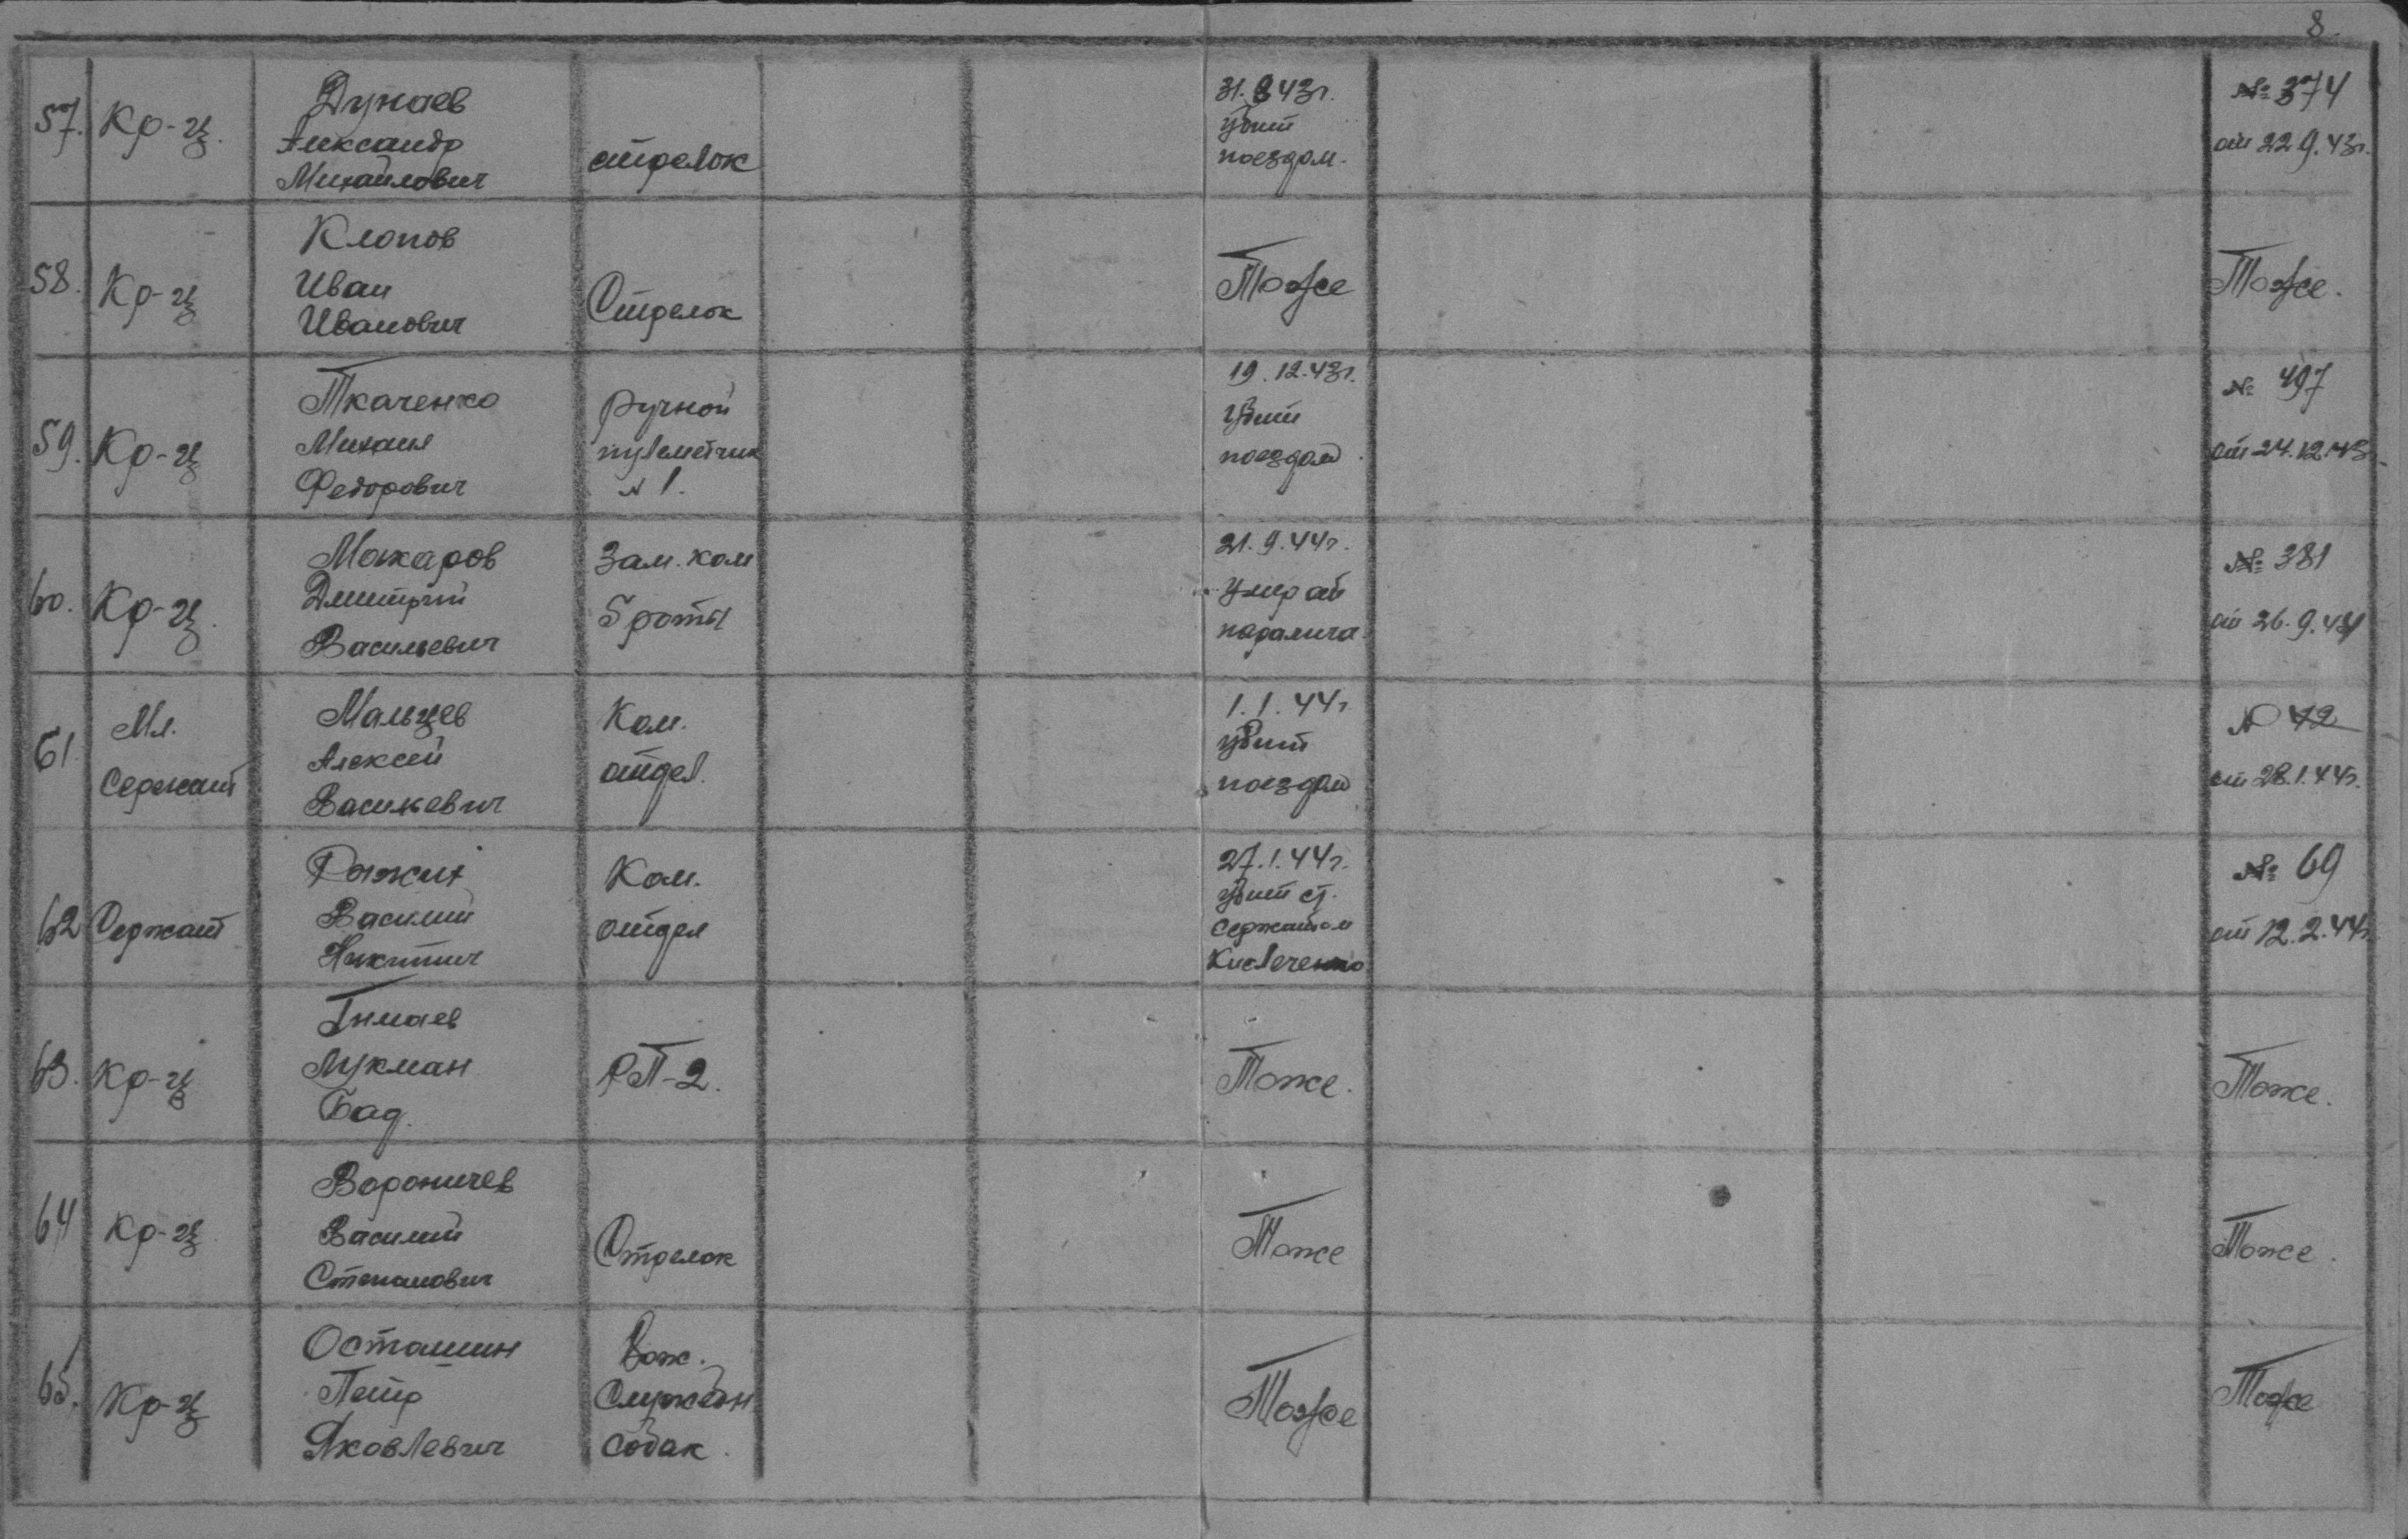 8.
57. Кр-ц. Дунаев Александр Михайлович стрелок 31.8.43г. убит поездом. № 374 от 22.9.43г.
58. Кр-ц Клопов Иван Иванович Стрелок Тоже Тоже.
59. Кр-ц Ткаченко Михаил Федорович Ручной пулеметчик N 1. 19.12.43г. убит поездом. № 497 от 24.12.43
60. Кр-ц. Макаров Дмитрий Васильевич Зам. ком 5 роты 21.9.44г. умер от паралича № 381 от 26.9.44
61 Мл. Сержант Мальцев Алексей Василевич Ком. отдел. 1.1.44г убит поездом № 42 от 28.1.44г.
62 Сержант Рыжих Василий Никитич Ком. отдел 27.1.44г. убит ст. сержантом Кисличенко № 69 от 12.2.44г.
63. Кр-ц Гимаев Лукман Бад. РП-2. Тоже. Тоже.
64 Кр-ц Вороничев Василий Степанович Стрелок Тоже Тоже.
65. Кр-ц Осташин Петр Яковлевич Вож. Служебн собак. Тоже Тоже